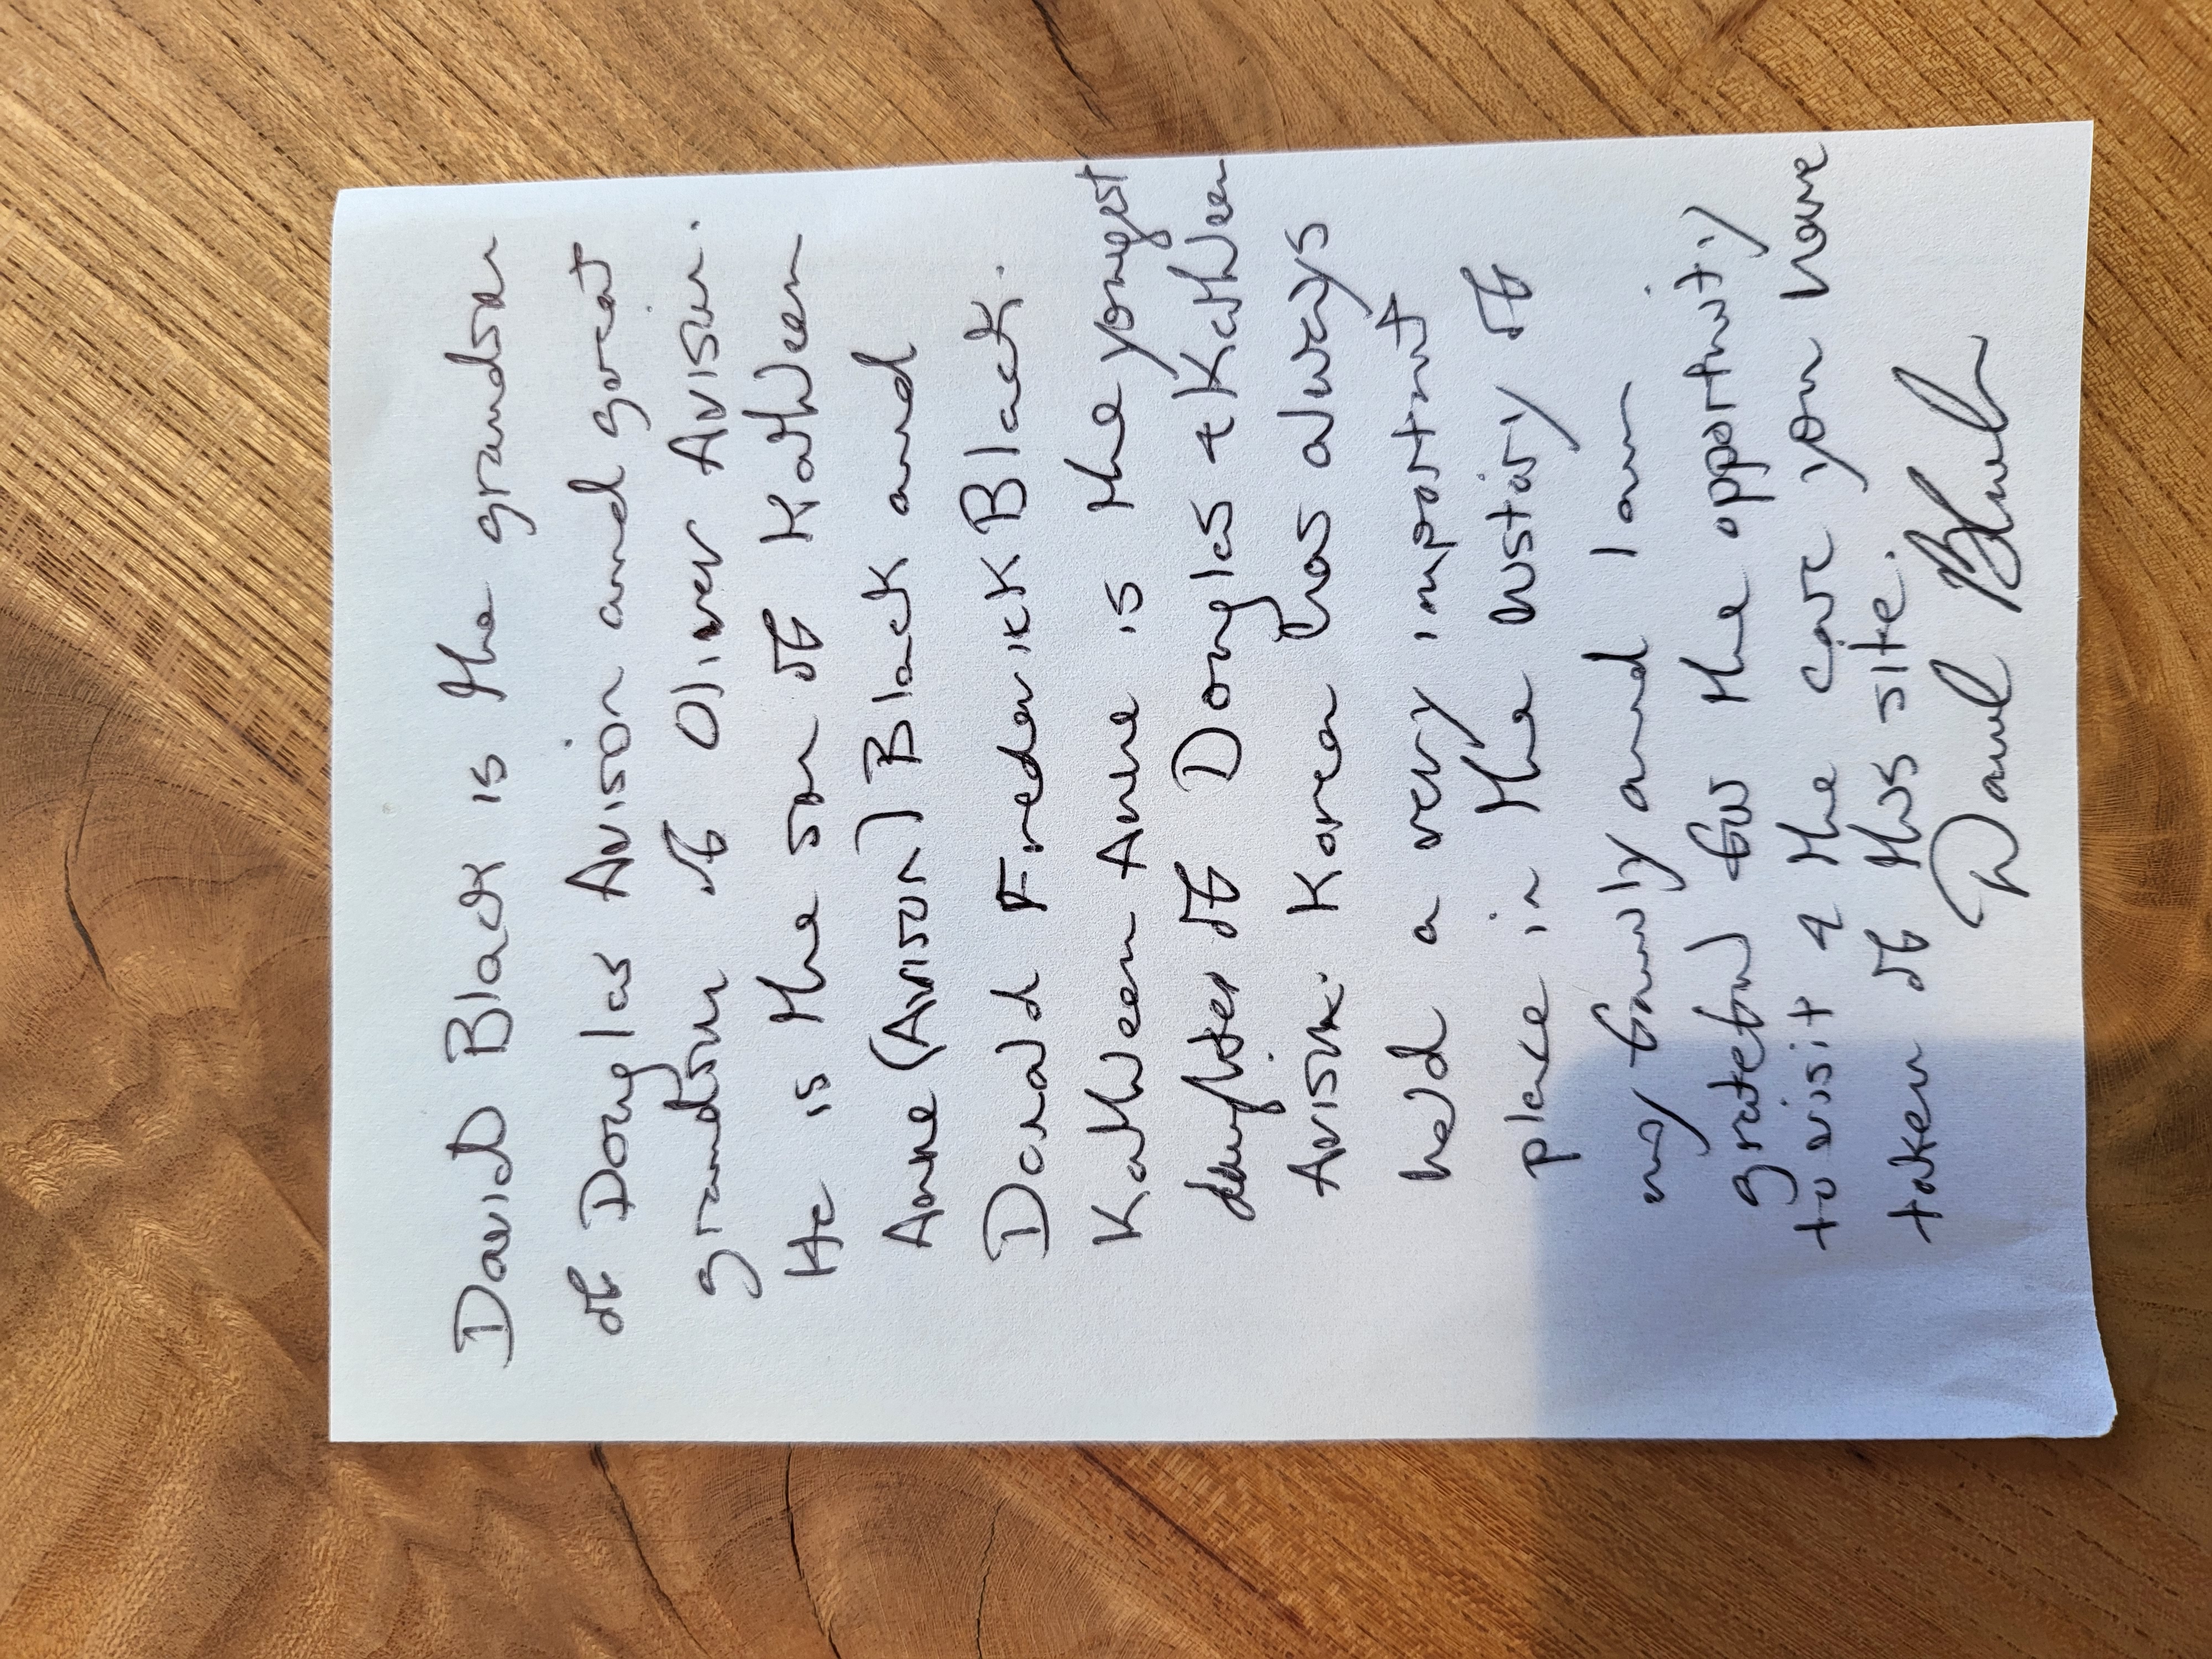 David Black is the grandson
of Douglas Avison and great
grandson of Oliver Avison.
He is the son of Kathleen
Anne (Avison) Black and
Donald Frederick Black.
Kathleen Anne is the yongest
daughter of Douglas & Kathleen
Avison. Korea has always
held a very important
place in the history of
my family and I am
grateful for the opportunity
to visit & the care you have
taken of this site.
David Black